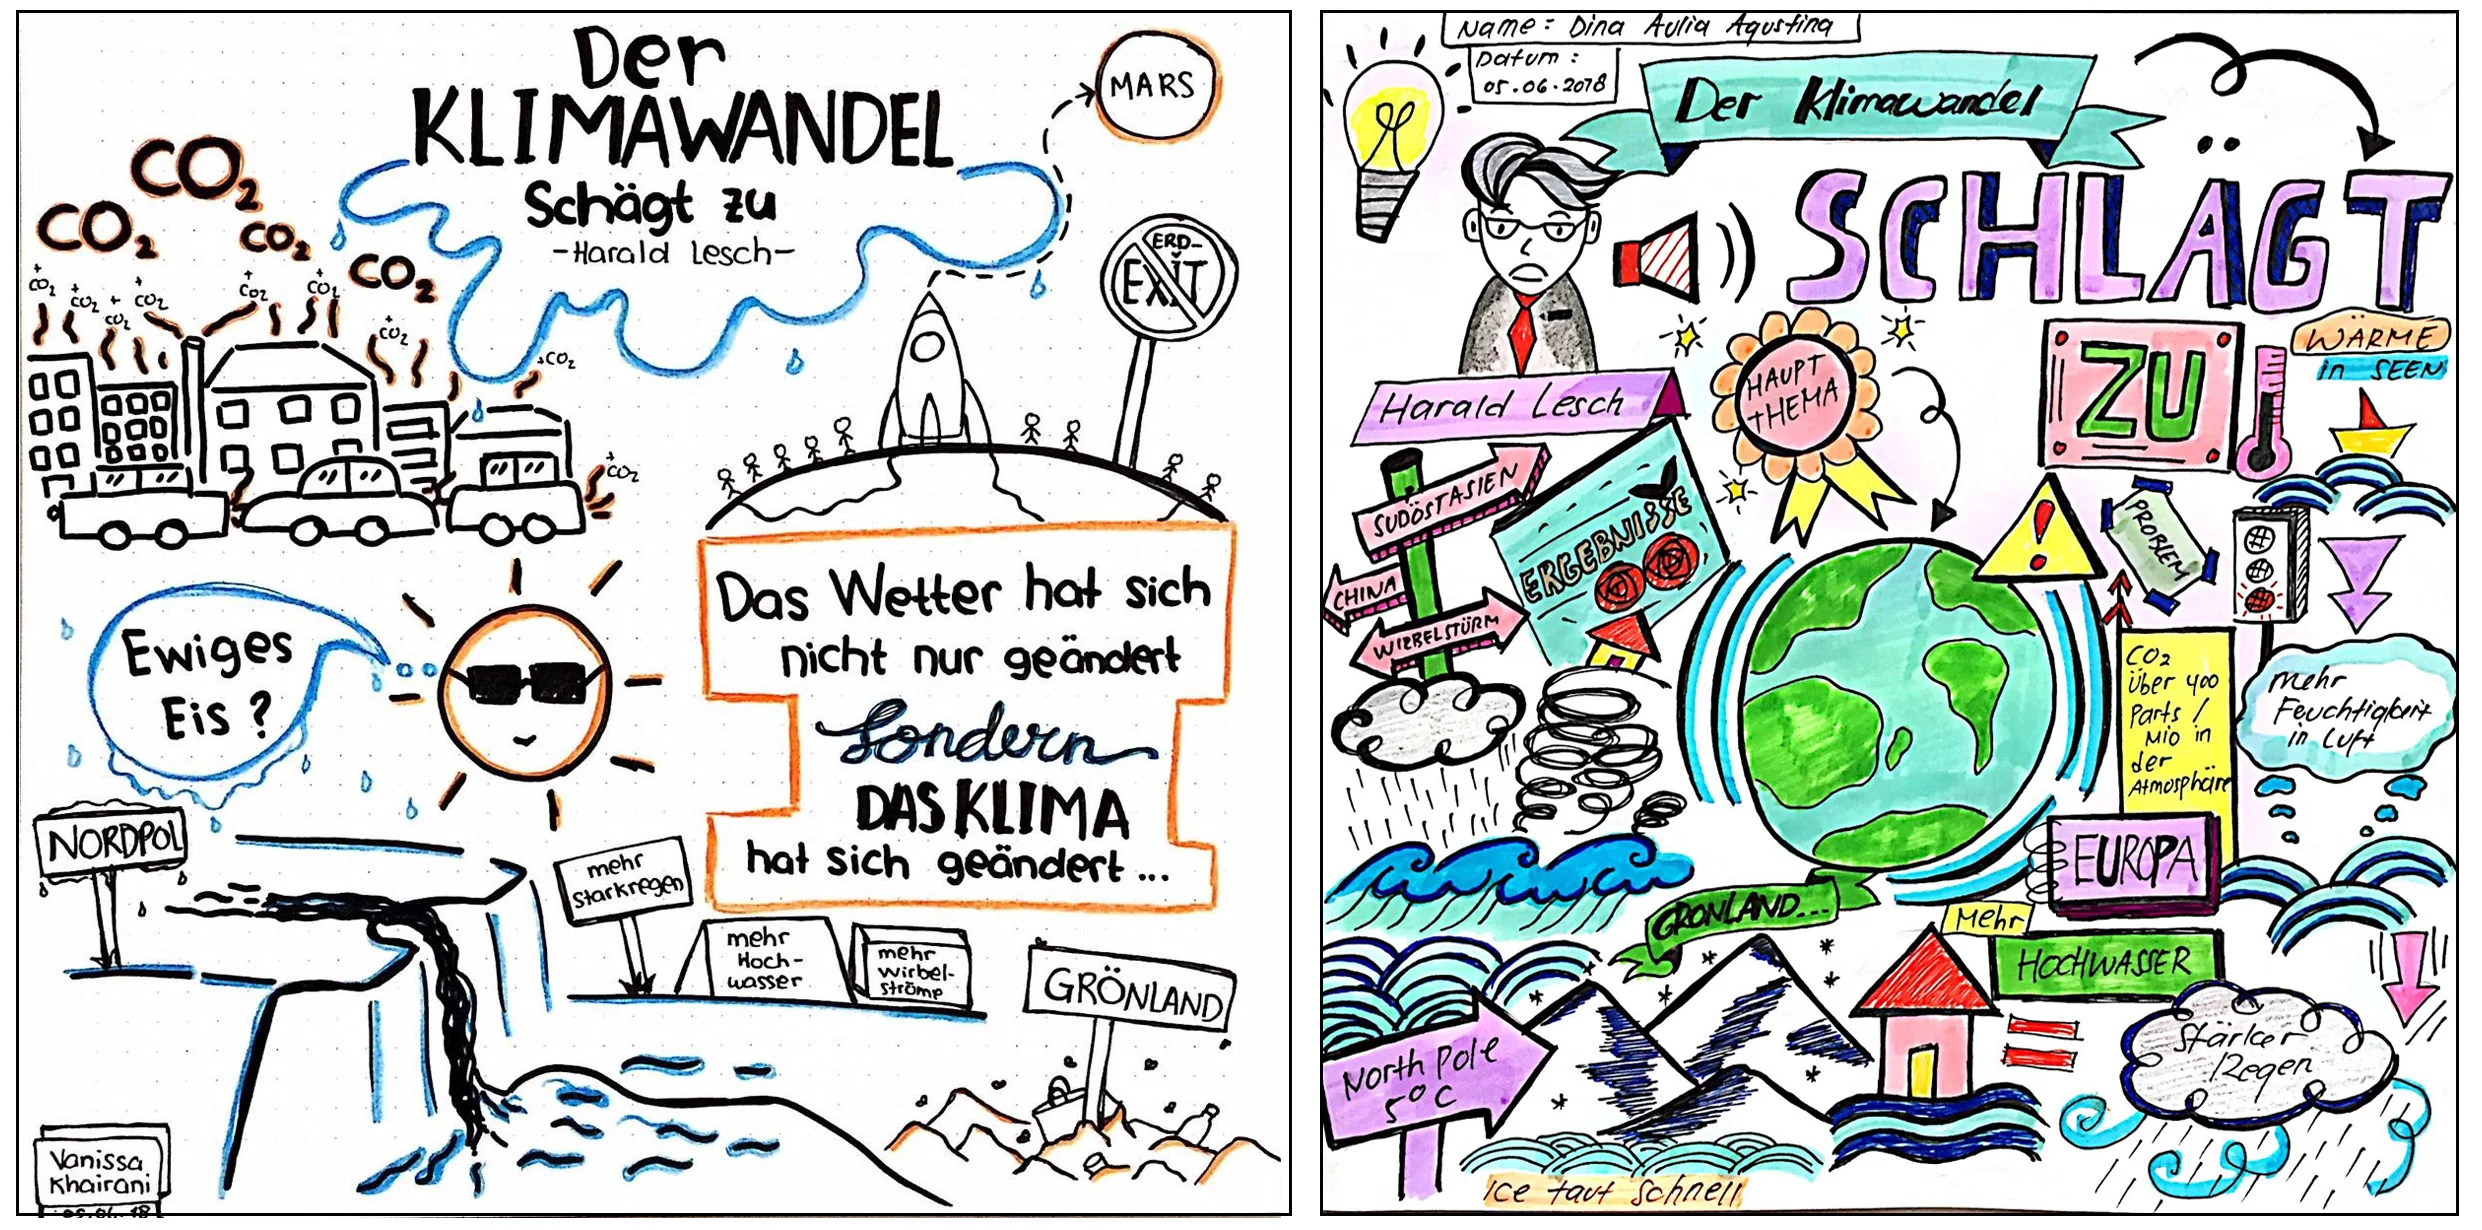 Der
KLIMAWANDEL
Schägt zu
-Harald Lesch-
MARS
ERD-
EXIT
CO2
CO2
CO2
CO2
+
CO2
+
CO2
+
CO2
+
CO2
+
CO2
+
CO2
+
CO2
+CO2
+
CO2
Ewiges
Eis ?
Das Wetter hat sich
nicht nur geändert
Sondern
DAS KLIMA
hat sich geändert...
NORDPOL
mehr
Starkregen
mehr
Hoch-
wasser
mehr
wirbel-
strömp
GRÖNLAND
Vanissa
Khairani
05.06.18
Name : Dina Aulia Agustina
Datum :
05.06.2018
Der Klimawandel
SCHLÄGT
ZU
Harald Lesch
HAUPT
THEMA
WÄRME
in SEEN
SUDÖSTASIEN
CHINA
WIRBELSTÜRM
ERGEBNISSE
PROBLEM
CO2
Über 400
Parts /
Mio in
der
Atmosphäre
mehr
Feuchtigkeit
in Luft
EUROPA
GRONLAND...
Mehr
HOCHWASSER
North pole
5°C
Stärker
Regen
Ice taut schnell